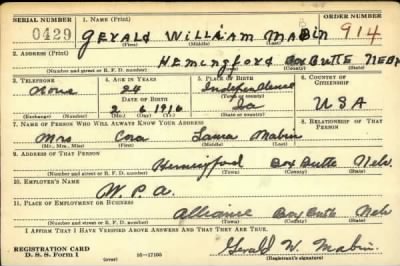 SERIAL NUMBER 1. NAME (Print) ORDER NUMBER
0429 GERALD WILLIAM MABIN 914
(First) (Middle) (Last)
2. ADDRESS (Print)
Hemingford Box Butte Nebr
(Number and street or R. F. D. number) (Town) (County) (State)
3. TELEPHONE 4. AGE IN YEARS 5. PLACE OF BIRTH 6. COUNTRY OF CITIZENSHIP
None 24 Independence
DATE OF BIRTH (Town or county)
2 6 1916 Ia USA
(Exchange) (Number) (Mo.) (Day) (Yr.) (State or country)
7. NAME OF PERSON WHO WILL ALWAYS KNOW YOUR ADDRESS 8. RELATIONSHIP OF THAT PERSON
Mrs Cora Laura Mabin
(Mr., Mrs., Miss) (First) (Middle) (Last)
9. ADDRESS OF THAT PERSON
Hemingford Box Butte Nebr
(Number and street or R. F. D. number) (Town) (County) (State)
10. EMPLOYER'S NAME
W.P.A.
11. PLACE OF EMPLOYMENT OR BUSINESS
Alliance Box Butte Nebr
(Number and street or R. F. D. number) (Town) (County) (State)
I AFFIRM THAT I HAVE VERIFIED ABOVE ANSWERS AND THAT THEY ARE TRUE.
REGISTRATION CARD Gerald W. Mabin
D. S. S. Form 1 16—17105 (Registrant's signature)